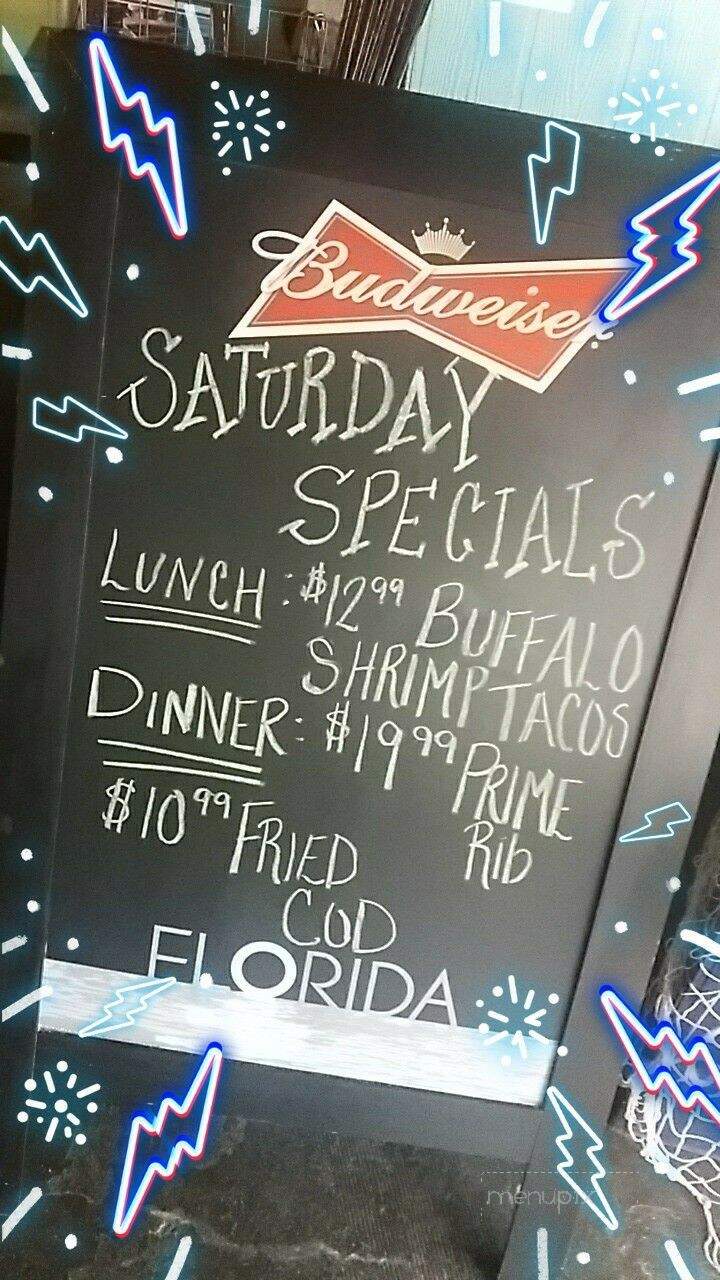 Budweiser
SATURDAY
SPECIALS
LUNCH: $12.99 BUFFALO
SHRIMP TACOS
DINNER: $19.99 PRIME
Rib
$10.99 FRIED
COD
FLORIDA